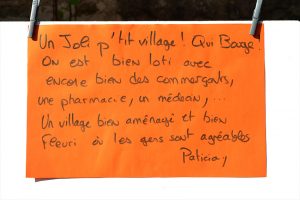 Un Joli p'tit village! Qui Bouge.
On est bien loti avec
encore bien des commerçants,
une pharmacie, un médecin,...
Un village bien aménagé et bien
Fleuri où les gens sont agréables
Paticia,